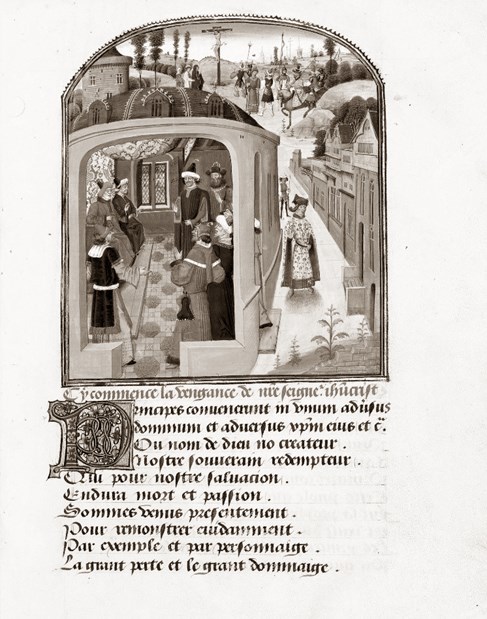 Cy commence la vengance de nre seigner ihucrist
Principes convenerunt in vnum adusus
dominum et aduersus xpm eius et c.
Ou nom de dieu no createur .
Nostre souuerain redempteur .
Qui pour nostre saluacion .
Endura mort et passion .
Sommes venus presentement .
Pour remonstrer euidamment .
Par exemple et par personnaige .
La grant perte et le grant dommaige .